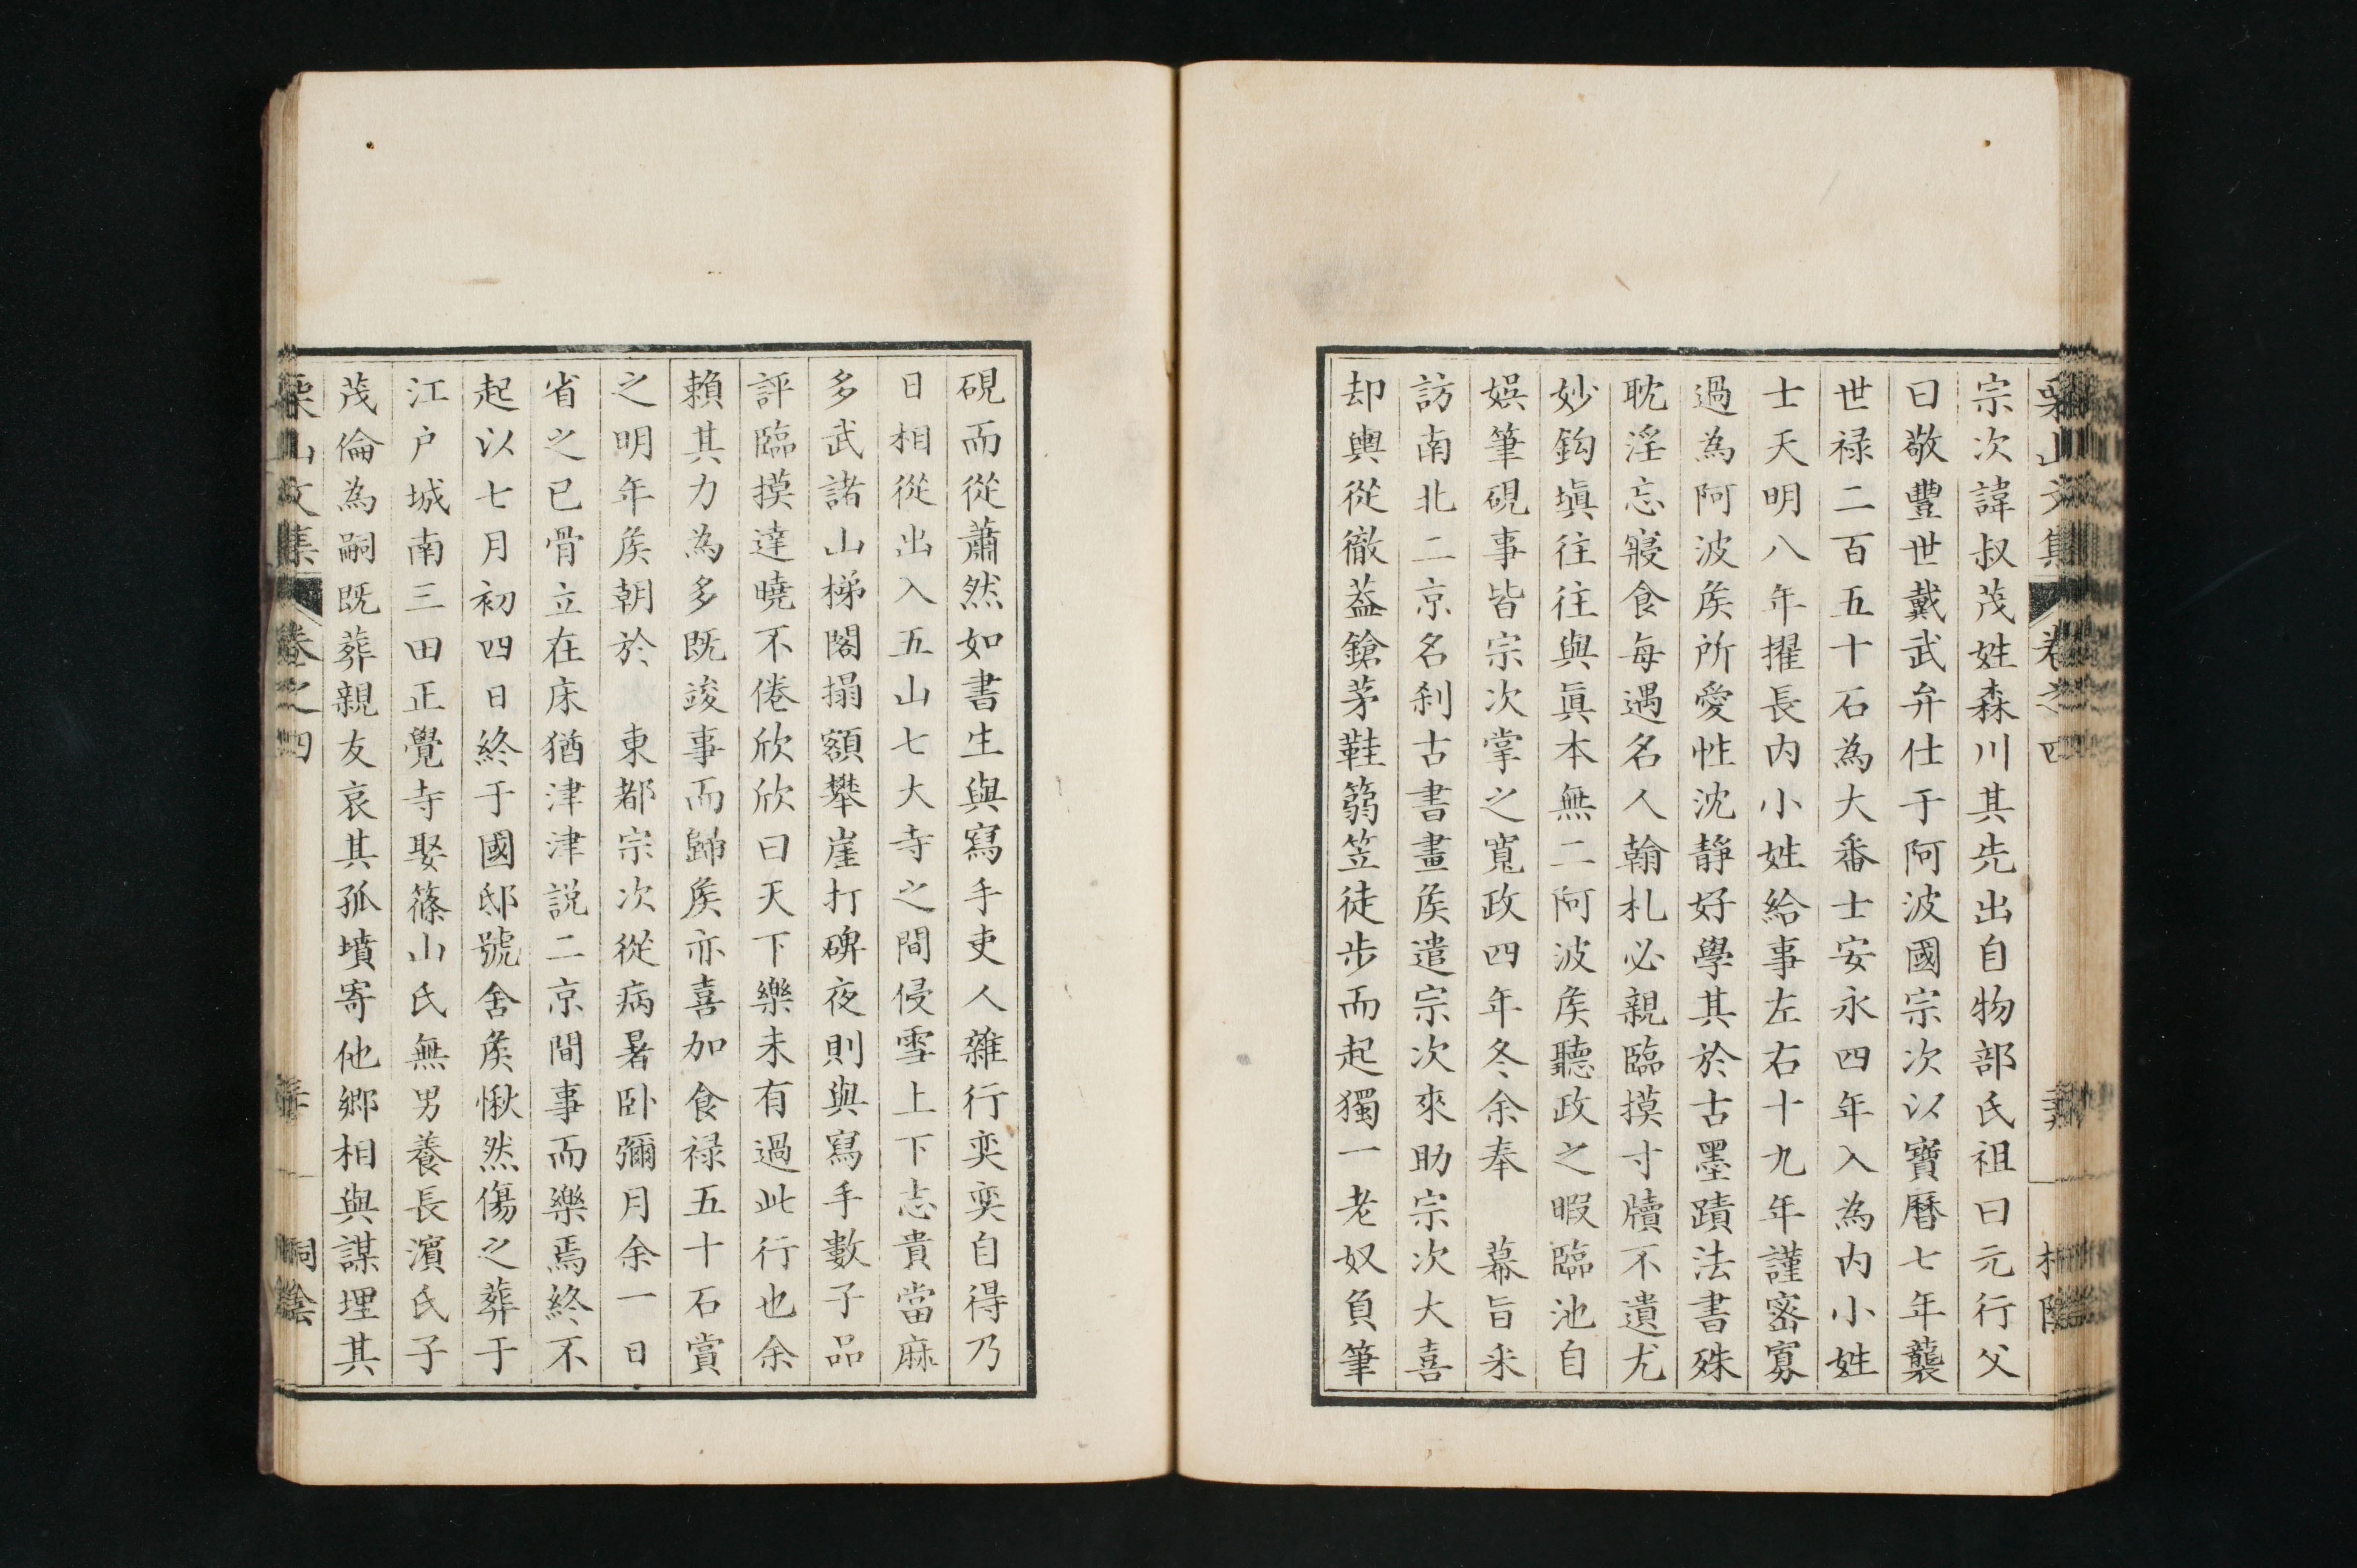 宗次諱叔茂姓森川其先出自物部氏祖曰元行父
曰敬豐世戴武弁仕于阿波國宗次以寶曆七年襲
世禄二百五十石為大番士安永四年入為内小姓
士天明八年擢長内小姓給事左右十九年謹密寡
過為阿波矦所愛性沈靜好學其於古墨蹟法書殊
耽淫忘寢食每遇名人翰札必親臨摸寸牘不遺尤
妙鈎塡往往與眞本無二阿波矦聽政之暇臨池自
娯筆硯事皆宗次掌之寬政四年冬余奉　幕旨来
訪南北二京名刹古書畫矦遣宗次來助宗次大喜
却輿從徹葢鎗茅鞋篛笠徒步而起獨一老奴負筆
硯而從蕭然如書生與寫手吏人雜行奕奕自得乃
日相從出入五山七大寺之間侵雪上下志貴當麻
多武諸山梯閣搨額攀崖打碑夜則與寫手數子品
評臨摸達曉不倦欣欣曰天下樂未有過此行也余
賴其力為多既竣事而歸矦亦喜加食禄五十石賞
之明年矦朝於　東都宗次從病暑卧彌月余一日
省之已骨立在床猶津津説二京間事而樂焉終不
起以七月初四日終于國邸號舍矦愀然傷之葬于
江户城南三田正覺寺娶篠山氏無男養長濱氏子
茂倫為嗣既葬親友哀其孤墳寄他鄉相與謀埋其
栗山文集　卷之四